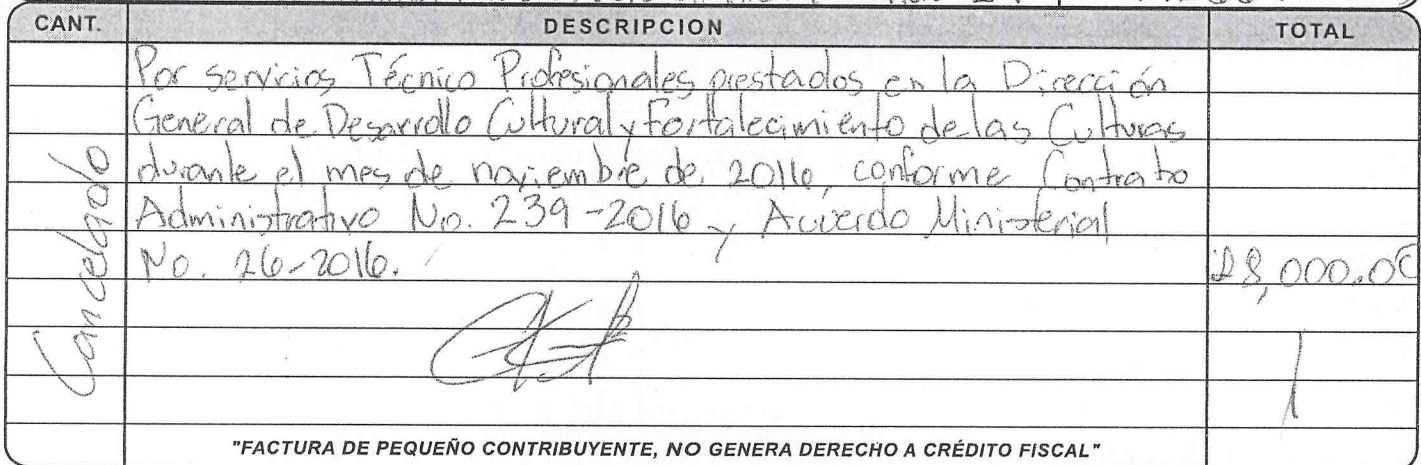 CANT. DESCRIPCION TOTAL
Por servicios Técnico Profesionales prestados en la Dirección
General de Desarrollo Cultural y Fortalecimiento de las Culturas
durante el mes de noviembre de 2016, conforme Contrato
Administrativo No. 239-2016 y Acuerdo Ministerial
No. 26-2016. 8,000.00
Cancelado
"FACTURA DE PEQUEÑO CONTRIBUYENTE, NO GENERA DERECHO A CRÉDITO FISCAL"